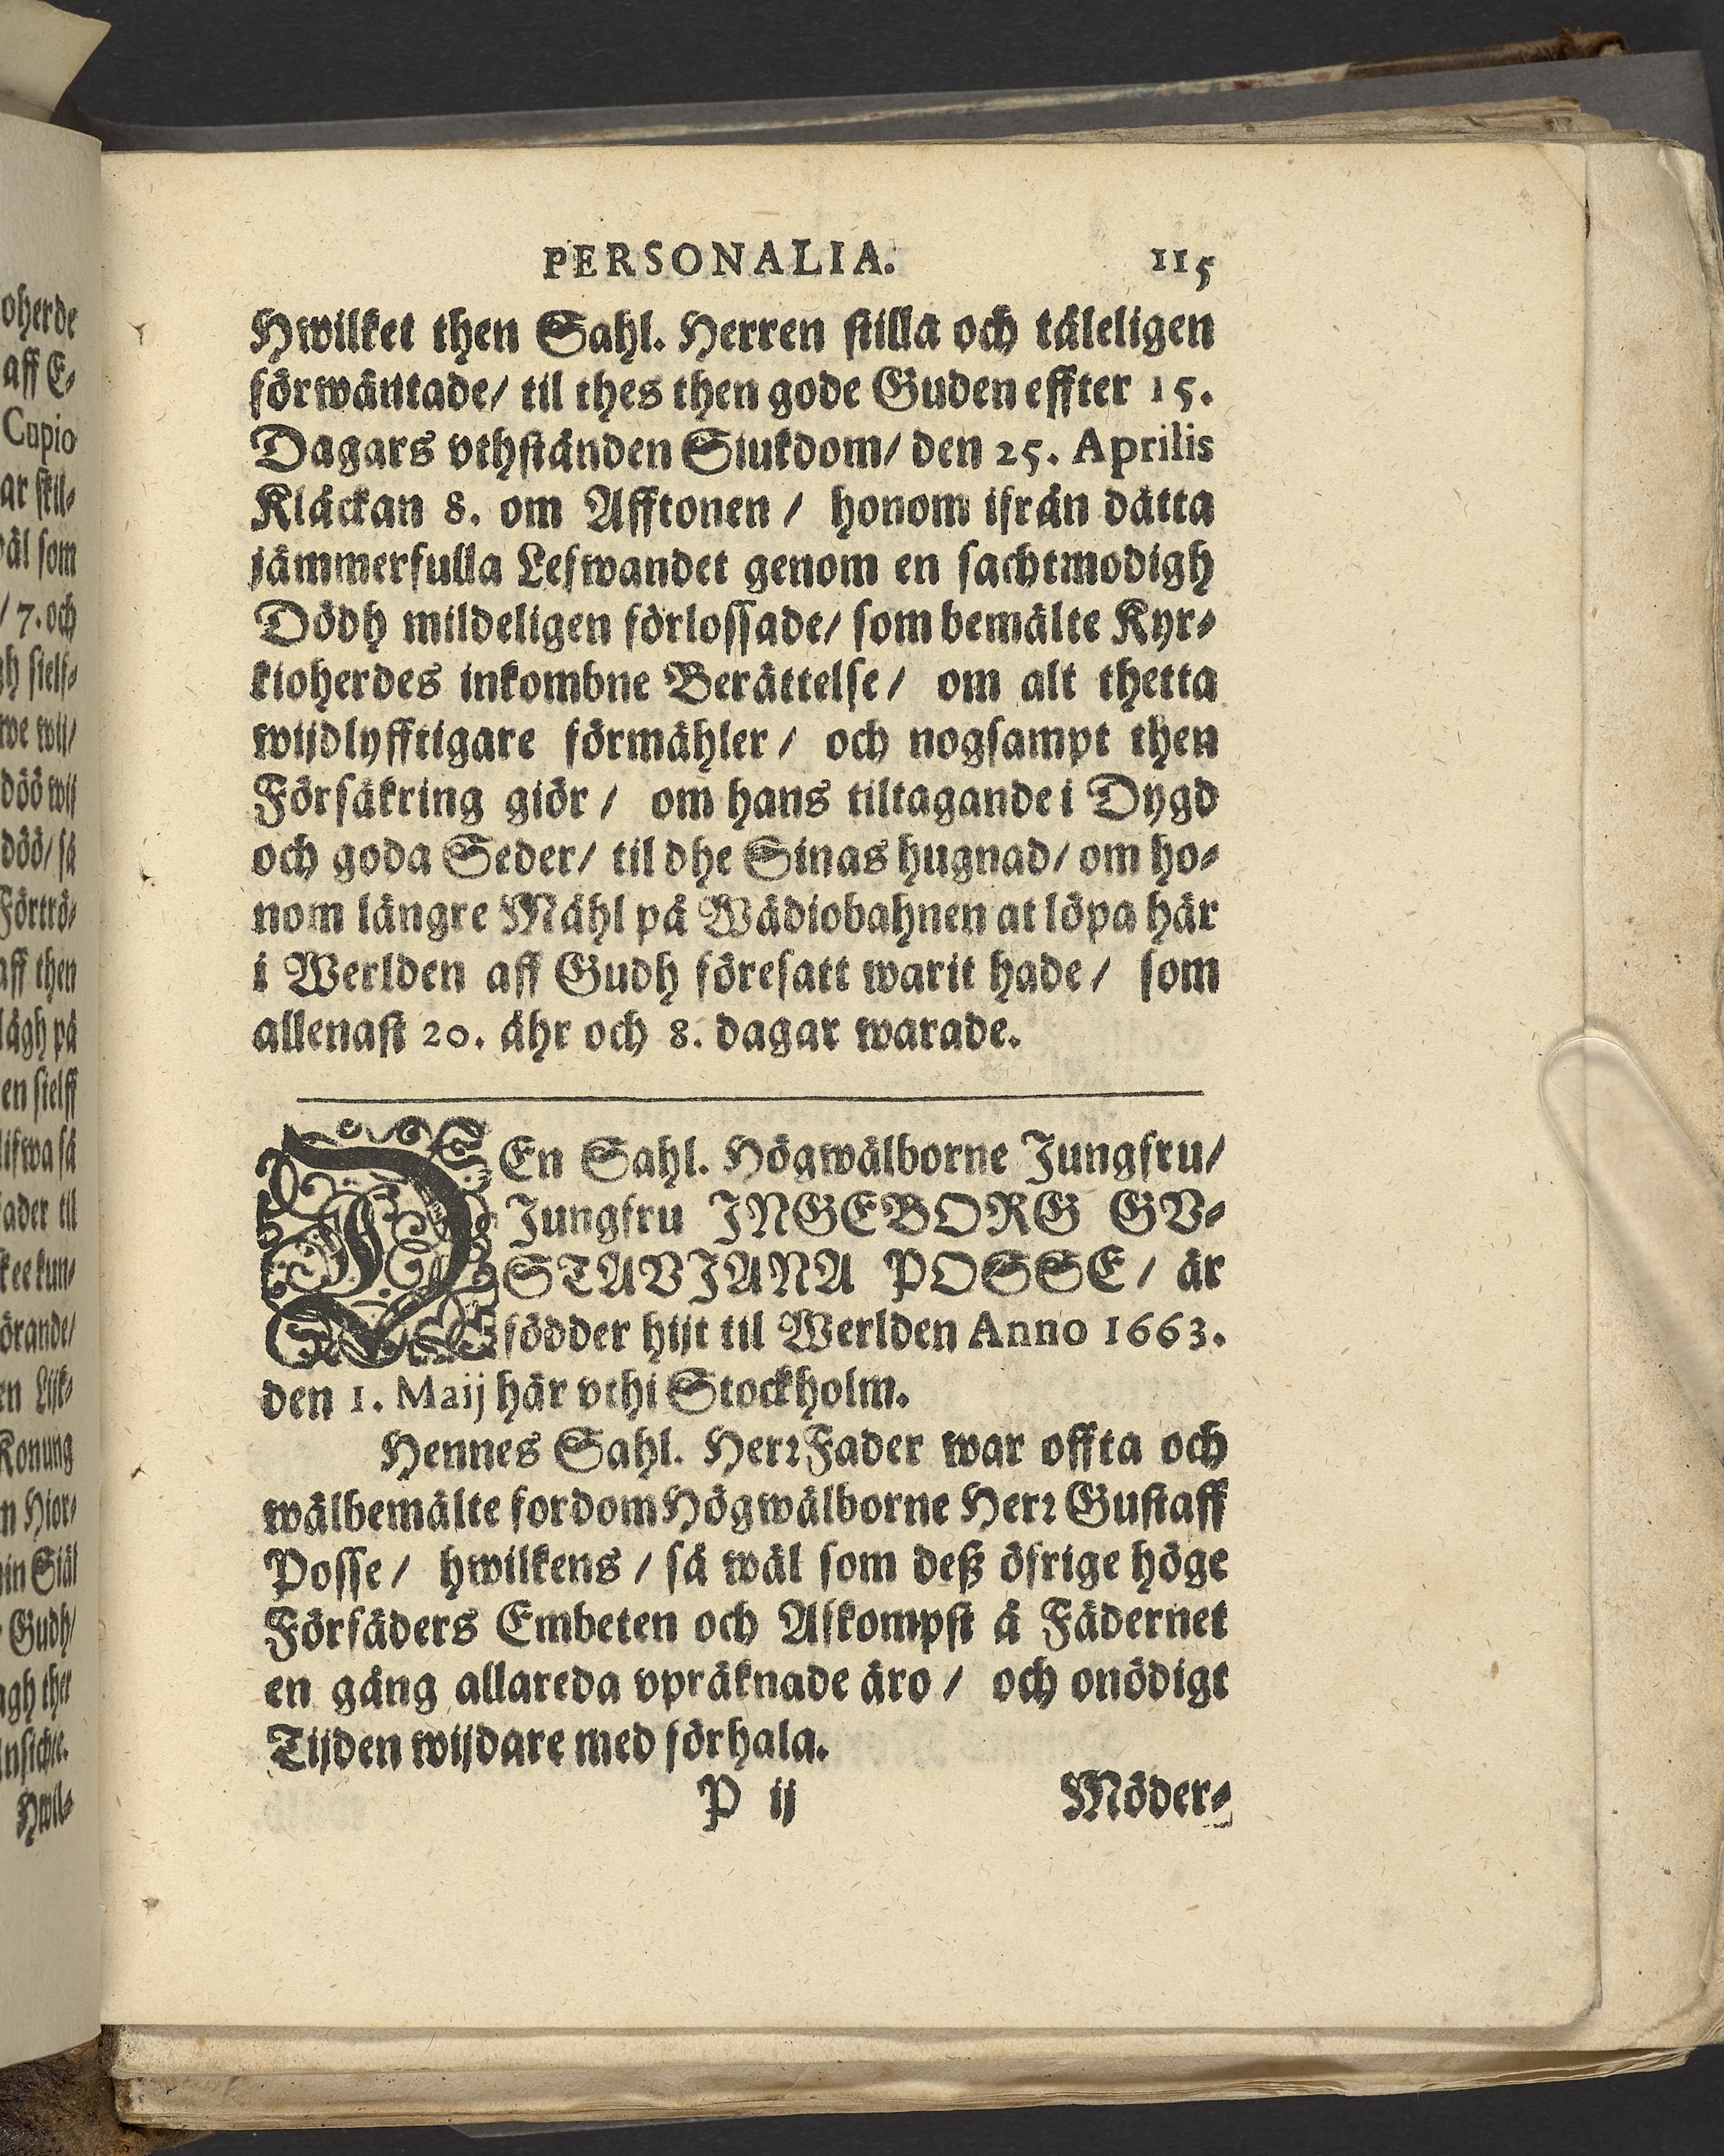 PERSONALIA. 115
Hwilket then Sahl. Herren stilla och tåleligen
förwäntade/ til thes then gode Guden effter 15.
Dagars vthstånden Siukdom/ den 25. Aprilis
Klåckan 8. om Afftonen / honom ifrån dätta
jämmerfulla Lefwandet genom en sachtmodigh
Dödh mildeligen förlossade/ som bemälte Kyr-
kioherdes inkombne Berättelse/ om alt thetta
wijdlyfftigare förmähler/ och nogsampt then
Försäkring giör/ om hans tiltagande i Dygd
och goda Seder/ til dhe Sinas hugnad/ om ho-
nom längre Måhl på Wädiobahnen at löpa här
i Werlden aff Gudh föresatt warit hade/ som
allenast 20. åhr och 8. dagar warade.
DEn Sahl. Högwälborne Jungfru/
Jungfru INGEBORG GV-
STAVIANA POSSE/ är
födder hijt til Werlden Anno 1663.
den 1. Maij här vthi Stockholm.
Hennes Sahl. Herr Fader war offta och
wälbemälte fordom Högwälborne Herr Gustaff
Posse/ hwilkens/ så wäl som deß öfrige höge
Förfäders Embeten och Afkompst å Fädernet
en gång allareda vpräknade äro/ och onödigt
Tijden wijdare med förhala.
P ij Möder-
oherde
aff E-
Cupio
ar skil-
äl som
/ 7. och
gh sielf-
we wij/
döö wij
döö/ så
Förtrö-
aff then
lågh på
en sielff
lifwa så
ader til
kee kun-
örande/
en Lijk-
Konung
n Hior-
in Siäl
Gudh/
agh ther
Hwil-